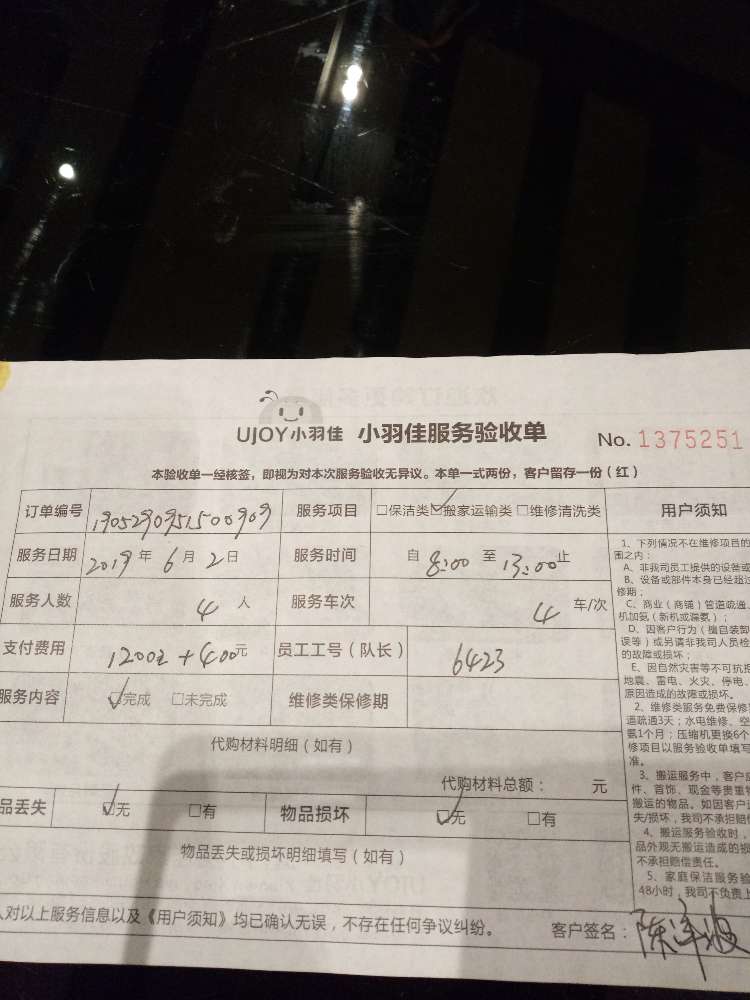 UJOY小羽佳 小羽佳服务验收单 No. 1375251
本验收单一经核签，即视为对本次服务验收无异议。本单一式两份，客户留存一份（红）
订单编号 1905290951500909 服务项目 □保洁类☑搬家运输类□维修清洗类 用户须知
服务日期 2019年6月2日 服务时间 自8:00至13:00止
服务人数 4人 服务车次 4车/次
支付费用 1200元+400元 员工工号（队长） 6423
服务内容 ☑完成 □未完成 维修类保修期
代购材料明细（如有）
代购材料总额： 元
品丢失 ☑无 □有 物品损坏 ☑无 □有
物品丢失或损坏明细填写（如有）
人对以上服务信息以及《用户须知》均已确认无误，不存在任何争议纠纷。 客户签名：
1、下列情况不在维修项目的
围之内：
A、非我司员工提供的设备或
B、设备或部件本身已经超过
修期；
C、商业（商铺）管道疏通、
机加氨（新机或漏氨）；
D、因客户行为（擅自装卸
误等）或另请非我司人员检
的故障或损坏；
E、因自然灾害等不可抗拒
地震、雷电、火灾、停电、
原因造成的故障或损坏。
2、维修类服务免费保修
道疏通3天；水电维修、空
氨1个月；压缩机更换6个
修项目以服务验收单填写
准。
3、搬运服务中，客户应
件、首饰、现金等贵重物
搬运的物品。如因客户
失/损坏，我司不承担赔偿
4、搬运服务验收时，
品外观无搬运造成的损
不承担赔偿责任。
5、家庭保洁服务验
48小时，我司不负责上